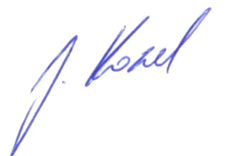 J. Kozel